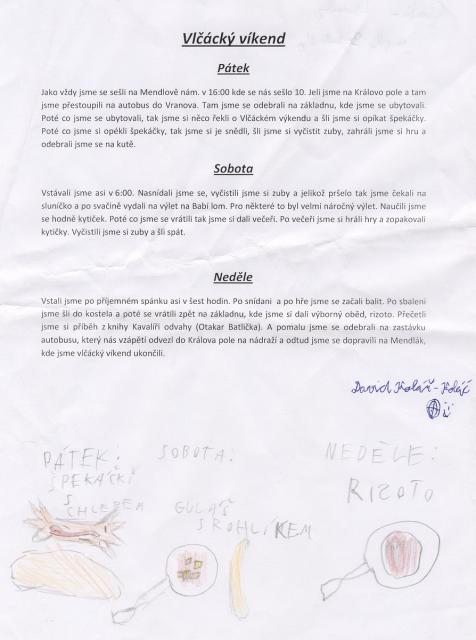 Vlčácký víkend
Pátek
Jako vždy jsme se sešli na Mendlově nám. v 16:00 kde se nás sešlo 10. Jeli jsme na Královo pole a tam
jsme přestoupili na autobus do Vranova. Tam jsme se odebrali na základnu, kde jsme se ubytovali.
Poté co jsme se ubytovali, tak jsme si něco řekli o Vlčáckém výkendu a šli jsme si opíkat špekáčky.
Poté co jsme si opékli špekáčky, tak jsme si je snědli, šli jsme si vyčistit zuby, zahráli jsme si hru a
odebrali jsme se na kutě.
Sobota
Vstávali jsme asi v 6:00. Nasnídali jsme se, vyčistili jsme si zuby a jelikož pršelo tak jsme čekali na
sluníčko a po svačině vydali na výlet na Babí lom. Pro některé to byl velmi náročný výlet. Naučili jsme
se hodně kytiček. Poté co jsme se vrátili tak jsme si dali večeři. Po večeři jsme si hráli hry a zopakovali
kytičky. Vyčistili jsme si zuby a šli spát.
Neděle
Vstali jsme po příjemném spánku asi v šest hodin. Po snídani a po hře jsme se začali balit. Po sbalení
jsme šli do kostela a poté se vrátili zpět na základnu, kde jsme si dali výborný oběd, rizoto. Přečetli
jsme si příběh z knihy Kavalíři odvahy (Otakar Batlička). A pomalu jsme se odebrali na zastávku
autobusu, který nás vzápětí odvezl do Králova pole na nádraží a odtud jsme se dopravili na Mendlák,
kde jsme vlčácký víkend ukončili.
David Kolář-Kolář
PÁTEK:
ŠPEKÁČKI
S
CHLEBEM
SOBOTA:
GULÁŠ
S ROHLÍKEM
NEDĚLE:
RIZOTO